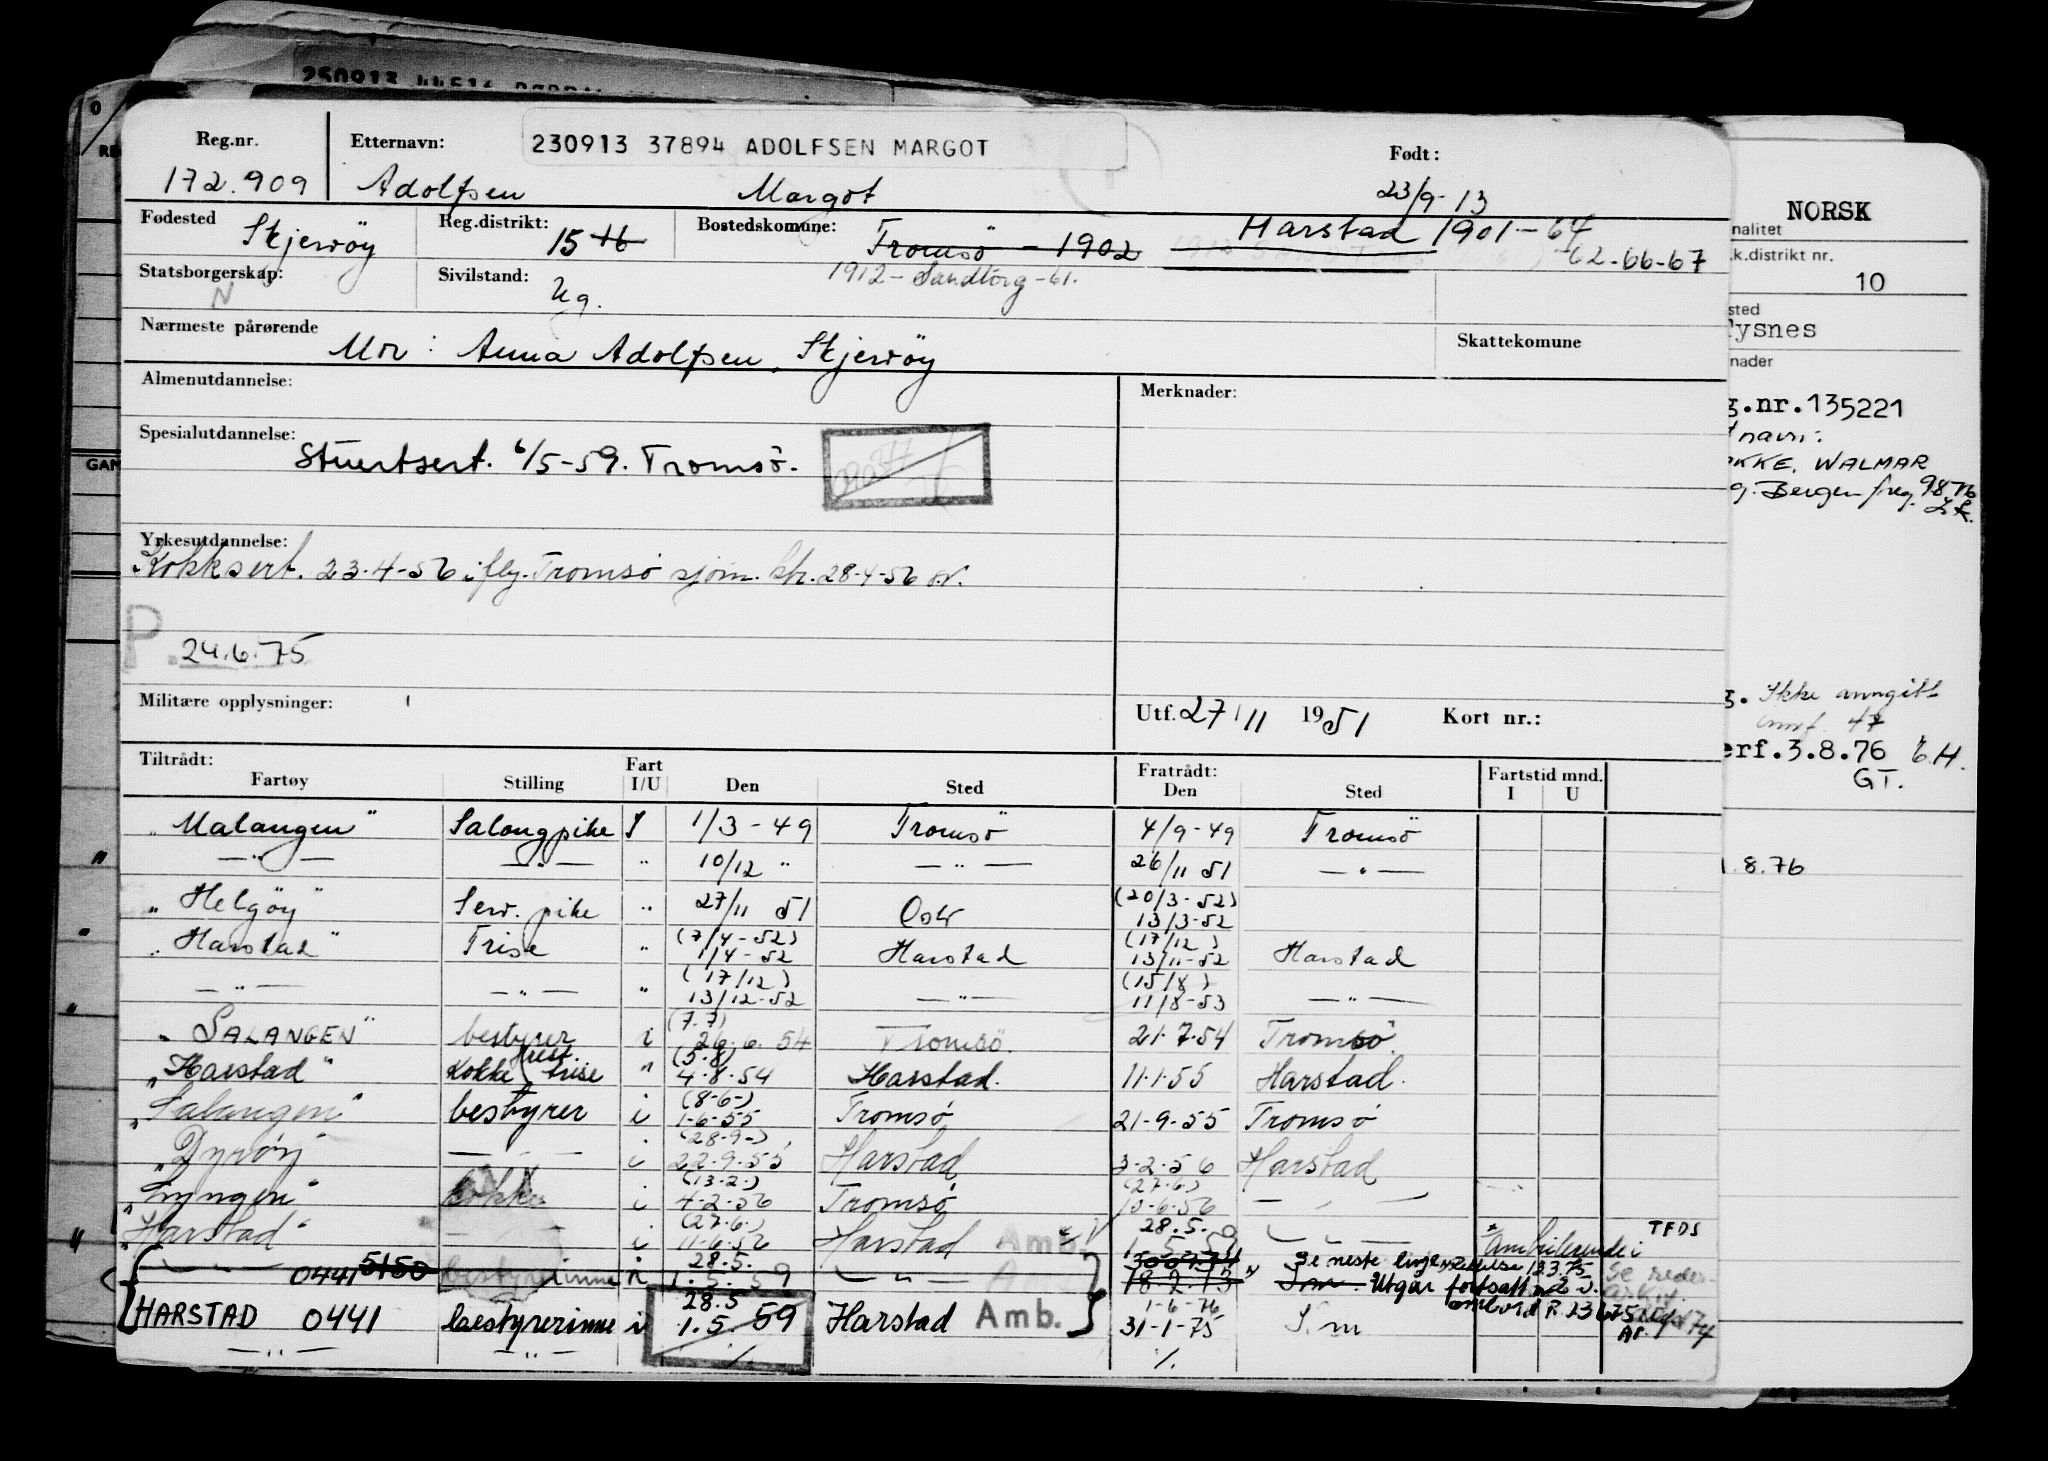 Reg.nr. Etternavn: 230913 37894 ADOLFSEN MARGOT Født:
172.909 Adolfsen Margot 23/9-13
Fødested Skjervöy Reg.distrikt: 15 Bostedskommune: Tromsö - 1902 Harstad 1901-64
62-66-67
Statsborgerskap: N Sivilstand: Ug. 1912 - Sandtorg -61.
Nærmeste pårørende Mor: Anna Adolfsen, Skjervöy Skattekomune
Almenutdannelse: Merknader:
Spesialutdannelse: Stuertsert. 6/5-59. Tromsö.
Yrkesutdannelse:
Kokksert. 23-4-56 iflg. Tromsø sjøm. ktr. 28-4-56
P. 24.6.75
Militære opplysninger: Utf. 27/11 1951 Kort nr.:
Tiltrådt: Fart Fratrådt: Fartstid mnd.
Fartøy Stilling I/U Den Sted Den Sted I U
"Malangen" Salongpike I 1/3-49 Tromsö 4/9-49 Tromsö
—"— —"— " 10/12 " —"— 26/11 51 —"—
"Helgöy" Serv. pike " 27/11 51 (20/3-52)
13/3-52
"Harstad" Trise " (7/4-52) (17/12)
1/4-52 Harstad 13/11-52 Harstad
—"— —"— " (17/12) (15/8)
13/12-52 —"— 11/8-53 —"—
"SALANGEN" bestyrer i (7.7)
26.6.54 Tromsö. 21.7.54 Tromsö.
"Harstad" Kokke/rest. trise " (5-8)
4.8.54 Harstad. 11.1.55 Harstad.
"Salangen" bestyrer i (8-6-)
1-6-55 Tromsø 21-9-55 Tromsø
"Dyröy" — " — i (28-9-)
22.9.55 Harstad 3-2-56 Harstad
"Lyngen" kokke i (13-2-) (27-6)
4-2-56 Tromsø 10-6-56 — " —
"Harstad" — i (27.6.) 28.5.
11-6-56 Harstad Amb. TFDS
—"— 0441 5150 bestyrerinne i 28.5.
1.5.59 —"— 18.2.73 Se neste linje Rettelse 12.3.75
S.m. Utgår fortsatt
HARSTAD 0441 bestyrerinne i 28.5
1.5.59 Harstad Amb. 1-6-76
31-1-75 S.m
—"— —"— ./. ./.
NORSK
nalitet
.k.distrikt nr.
10
sted
ysnes
nader
g.nr.135221
navn:
KKE, WALMAR
g. Bergen freg. 98 76
g. Ikke anngitt
47
erf.3.8.76 E.H.
GT.
1.8.76
250913
GAM